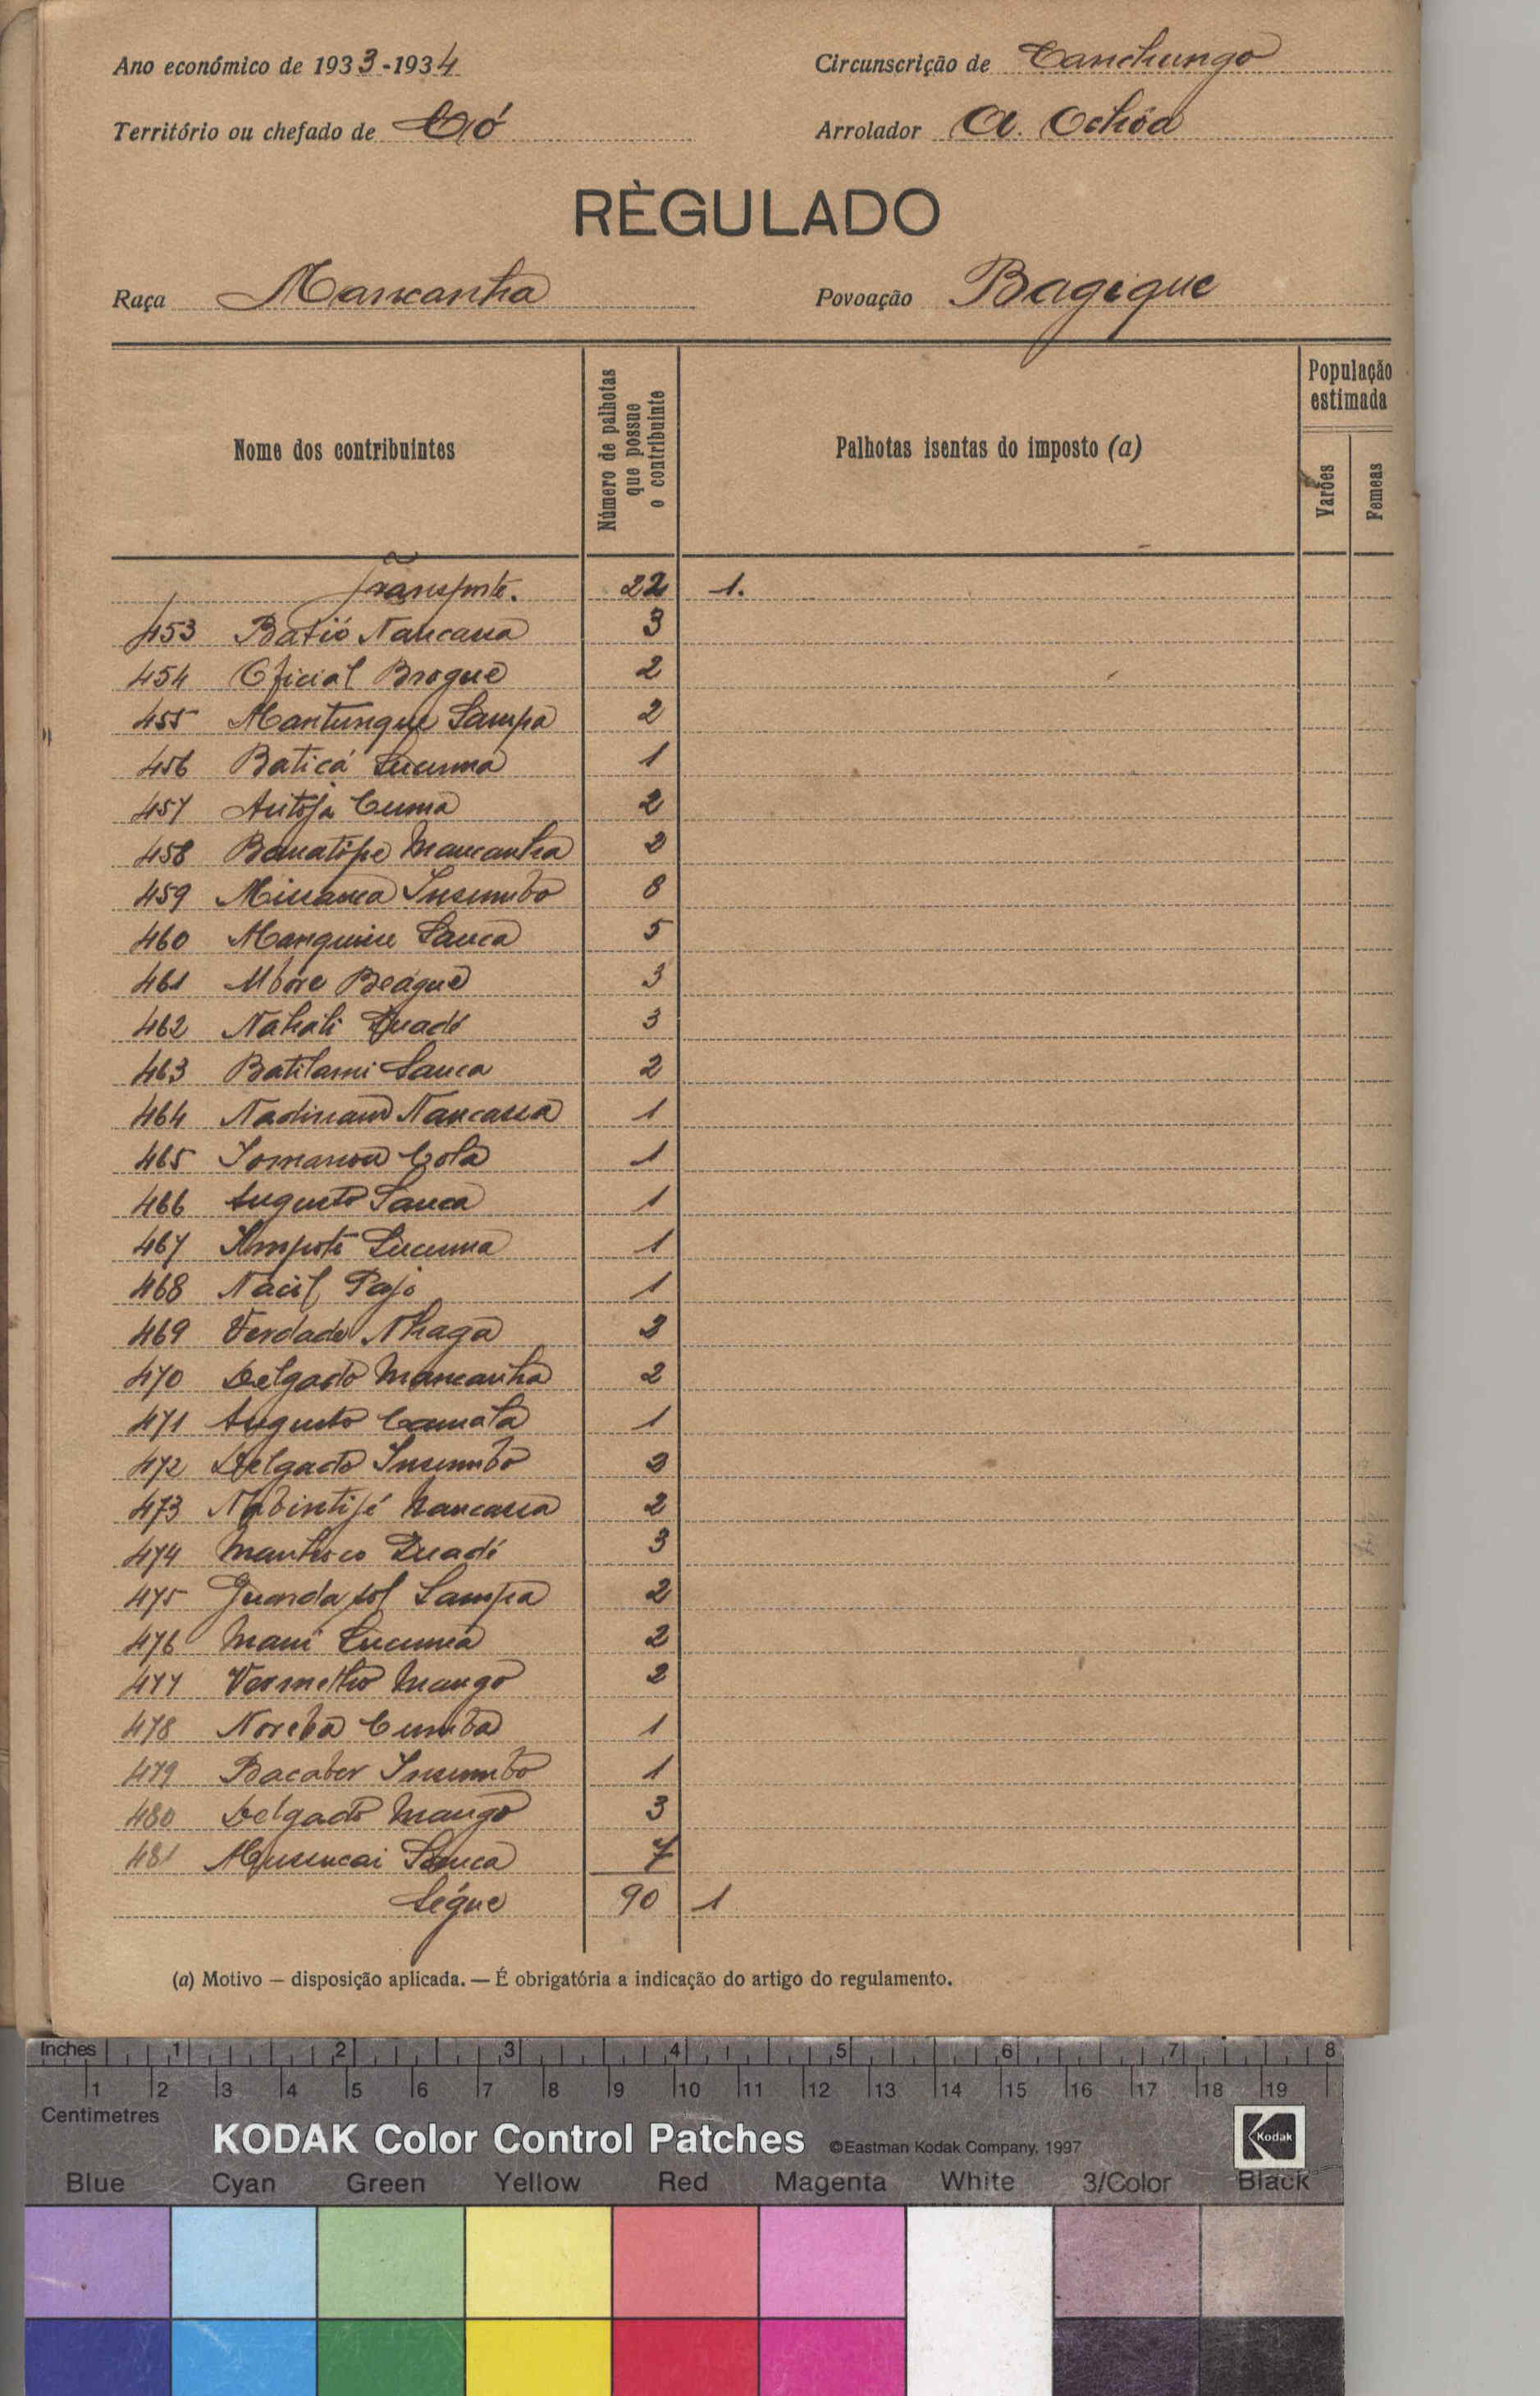 Ano económico de 1933-1934
Circunscrição de Canchungo
Território ou chefado de Có
Arrolador A. Ochôa
RÈGULADO
Raça Mancanha
Povoação Bagique
Nome dos contribuintes
Número de palhotas que possue o contribuinte
Palhotas isentas do imposto (a)
População estimada
Varões
Femeas
Transporte. 22 1.
453 Batió Nancassa 3
454 Oficial Broque 2
455 Mantungue Sampa 2
456 Baticá Lucuma 1
457 Cuma 2
458 Mancanha 2
459 Insumbo
460 Sanca 5
461 3
462 Nahali Quadé 3
463 Batilami Sanca 2
464 Nancassa 1
465 Cola 1
466 Augusto Sanca 1
467 Lucuma 1
468 Nacil 1
469 Verdade Nhaga
470 Delgado Mancanha 2
471 Augusto Camala 1
472 Delgado Insumbo
473 Nancassa 2
474 3
475 Guarda sol Sampa 2
476 Lucuma 2
477 Vermelho Mango 2
478 Cumba 1
479 Insumbo 1
480 Delgado Mango 3
481 Sanca 7
Ségue 90 1
(a) Motivo — disposição aplicada. — É obrigatória a indicação do artigo do regulamento.
Inches 1 2 3 4 5 6 7 8
1 2 3 4 5 6 7 8 9 10 11 12 13 14 15 16 17 18 19
Centimetres
KODAK Color Control Patches ©Eastman Kodak Company, 1997 Kodak
Blue Cyan Green Yellow Red Magenta White 3/Color Black